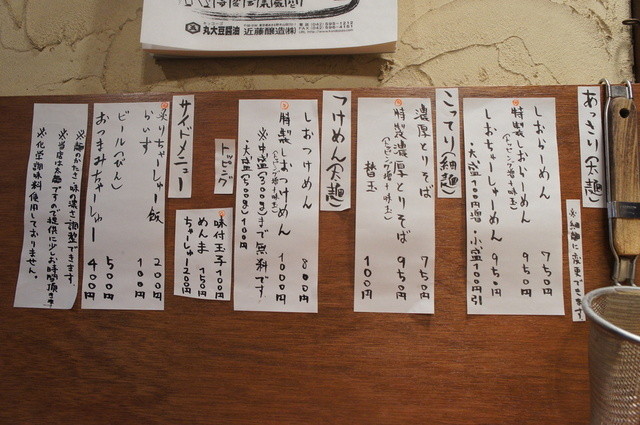 丸大豆醤油
近藤醸造(株)
あっさり(太麺)
※細麺に変更できます
しおらーめん 750円
特製しおらーめん 950円
(トッピング増+味玉)
しおちゃーしゅーめん 950円
・大盛100円増 ・小盛100円引
こってり(細麺)
濃厚とりそば 750円
特製濃厚とりそば 950円
(トッピング増+味玉)
替玉 100円
つけめん(太麺)
しおつけめん 800円
特製しおつけめん 1000円
(トッピング増+味玉)
※中盛(300g)まで無料です。
・大盛(500g)100円
トッピング
味付玉子 100円
めんま 150円
ちゃーしゅー 200円
サイドメニュー
炙りちゃーしゅー飯 200円
らいす 100円
ビール(びん) 500円
おつまみちゃーしゅー 400円
※麺のかたさ・味の濃さ調整できます。
※当店は太麺ですので提供に少しお時間頂きます
※化学調味料使用しておりません。